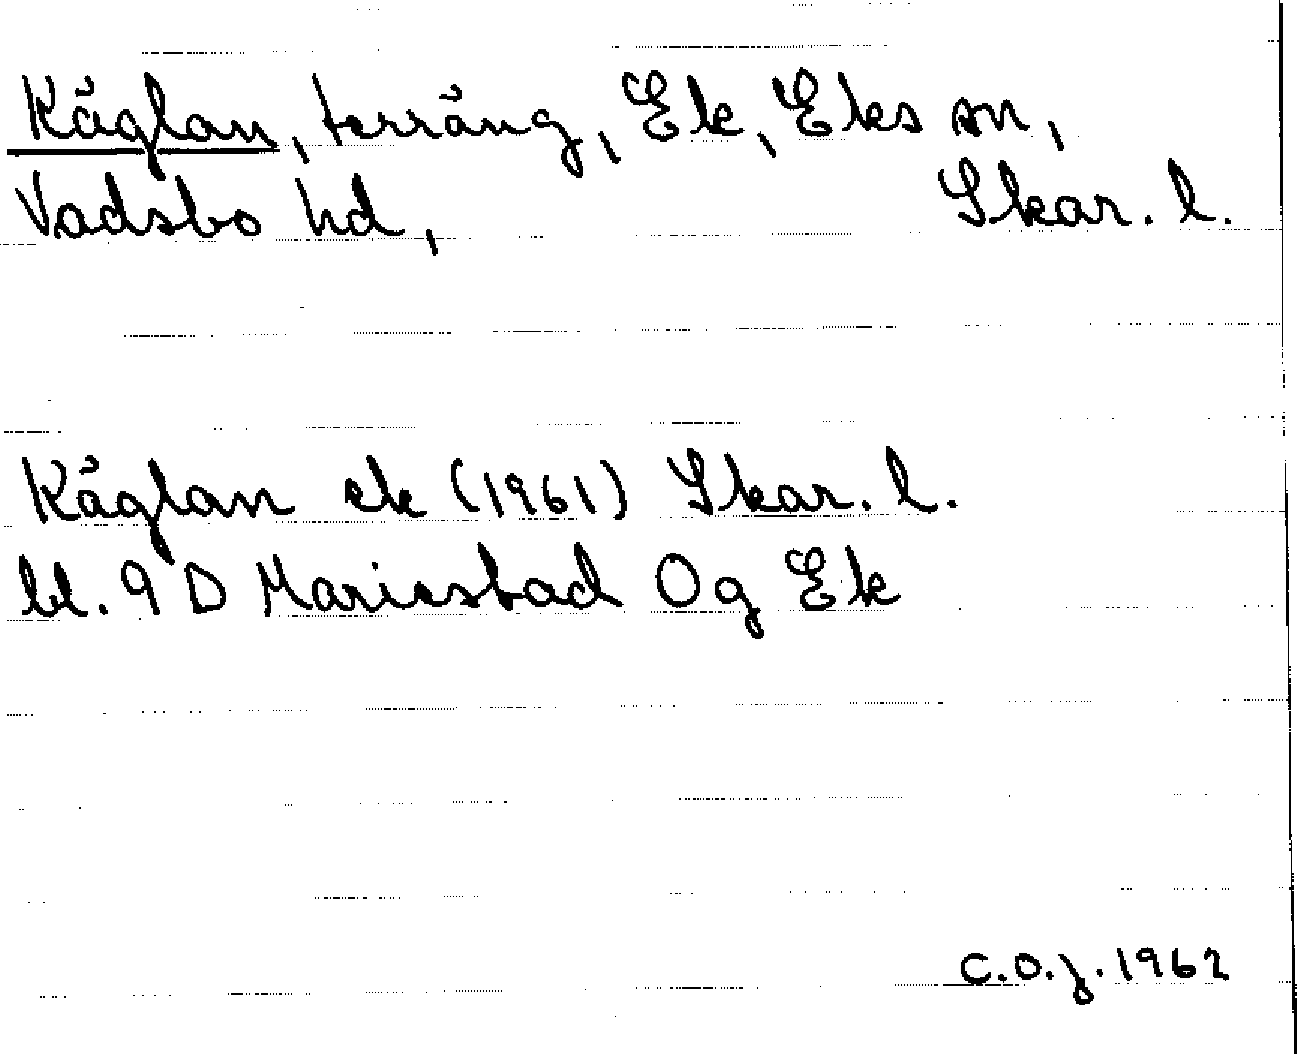 Käglan, terräng, Ek, Eks sn,
Vadsbo hd, Skar. l.
Käglan ek (1961) Skar. l.
bl. 9 D Mariestad Og Ek
C.O.J. 1962